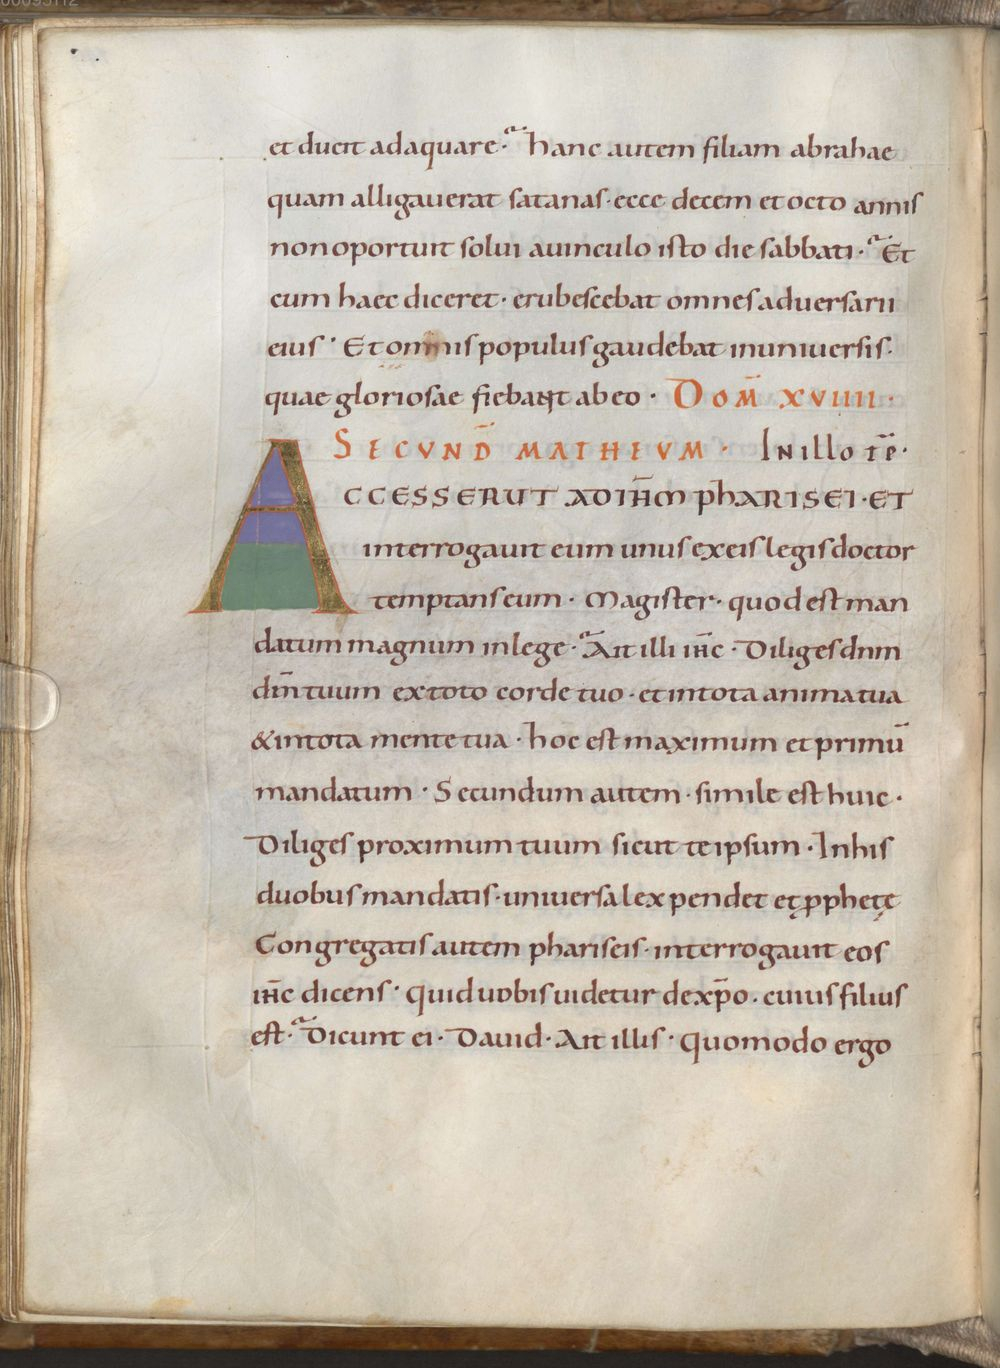 et ducit adaquare· hanc autem filiam abrahae
quam alligauerat satanas·ecce decem et octo annis
non oportuit solui auinculo isto die sabbati· Et
cum haec diceret· erubescebat omnes aduersarii
eius· Et omnis populus gaudebat inuniuersis·
quae gloriosae fiebant ab eo· Dom̄ XVIIII·
SECVND̄ MATHEVM· In illo tp̄r·
ACCESSERUT AD IH̄M PHARISEI·ET
interrogauit eum unus exeis legisdoctor
temptans eum· Magister· quod est man
datum magnum inlege· Ait illi ih̄c· Diliges dnm
dm̄ tuum ex toto corde tuo· et intota anima tua
& intota mente tua· hoc est maximum et primū
mandatum· Secundum autem· simile est huic·
Diliges proximum tuum sicut te ipsum· In his
duobus mandatis· uniuersa lex pendet et pphetę
Congregatis autem phariseis· interrogauit eos
ih̄c dicens· quid uobis uidetur de xp̄o· cuius filius
est· Dicunt ei· Dauid· Ait illis· quomodo ergo